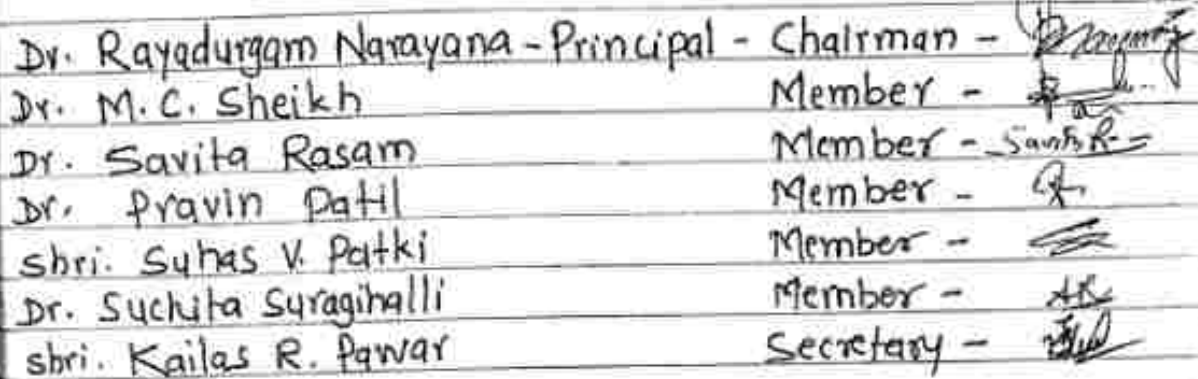 Dr. Rayadurgam Narayana - Principal - Chairman -
Dr. M.C. Sheikh Member -
Dr. Savita Rasam Member - Savita R
Dr. Pravin Patil Member -
Shri. Suhas V. Patki Member -
Dr. Suchita Suragihalli Member -
Shri. Kailas R. Pawar Secretary -